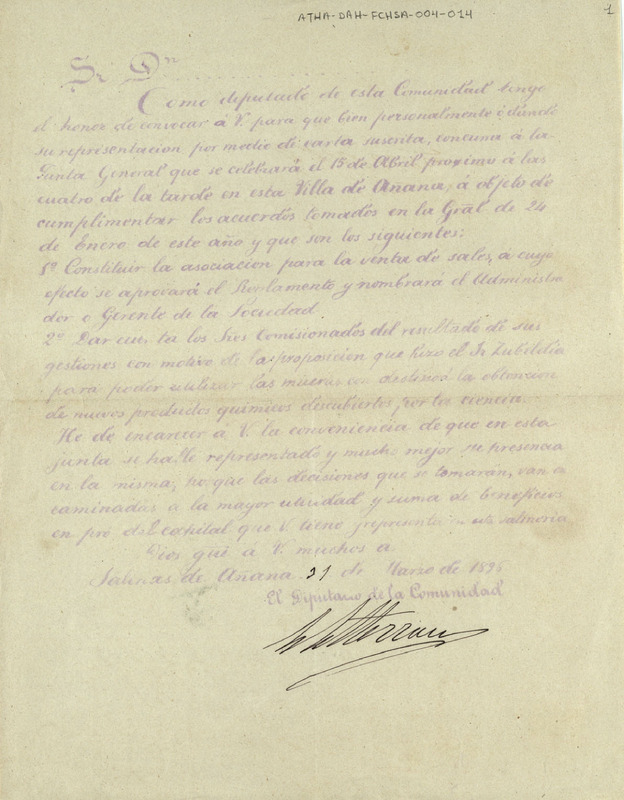 ATHA-DAH-FCHSA-004-014
1
Sr. Dn
Como deputado de esta Comunidad tengo
el honor de convocar á V. para que bien personalmente ó dando
su representacion por medio de carta suscrita, concurra á la
Junta General que se celebrará el 15 de Abril proximo á las
cuatro de la tarde en esta Villa de Añana, á objeto de
cumplimentar los acuerdos tomados en la Gral de 24
de Enero de este año y que son los siguientes:
1º Constituir la asociacion para la venta de sales, a cuyo
efecto se aprovará el Reglamento y nombrará el Administra
dor o Gerente de la Sociedad.
2º Dar cuenta los Sres Comisionados del resultado de sus
gestiones con motivo de la proposicion que hizo el Sr Zubildia
para poder utilizar las mueras con destino á la obtencion
de nuevos productos quimicos descubiertos por la ciencia.
He de encarecer á V. la conveniencia de que en esta
junta se halle representado y mucho mejor su presencia
en la misma, porque las decisiones que se tomaran, van en
caminadas a la mayor utilidad y suma de beneficios
en pro del capital que V. tiene representado en esta salineria
Dios gue a V. muchos a
Salinas de Añana 31 de Marzo de
El Diputado de la Comunidad